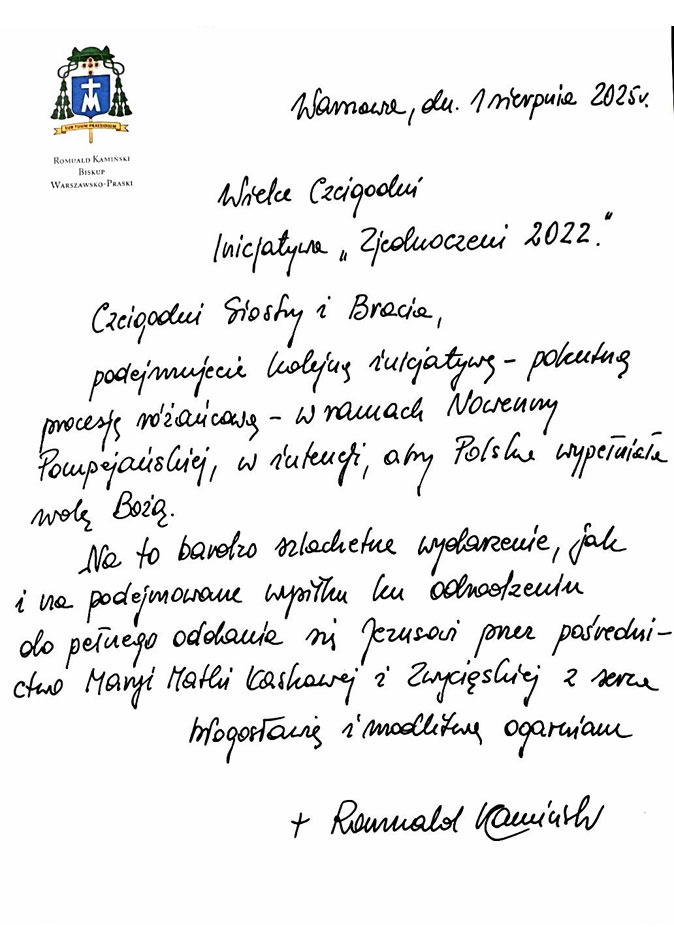 SUB TUUM PRAESIDIUM
ROMUALD KAMIŃSKI
BISKUP
WARSZAWSKO-PRASKI
Warszawa, dn. 1 sierpnia 2025r.
Wielce Czcigodni
Inicjatywa „Zjednoczeni 2022."
Czcigodni Siostry i Bracia,
podejmujecie kolejną inicjatywę – pokutną
procesję różańcową – w ramach Nowenny
Pompejańskiej, w intencji, aby Polska wypełniała
wolę Bożą.
Na to bardzo szlachetne wydarzenie, jak
i na podejmowane wysiłku ku odrodzeniu
do pełnego oddania się Jezusowi przez pośredni-
ctwo Maryi Matki Łaskawej i Zwycięskiej z serca
błogosławię i modlitwą ogarniam
+ Romuald Kamiński